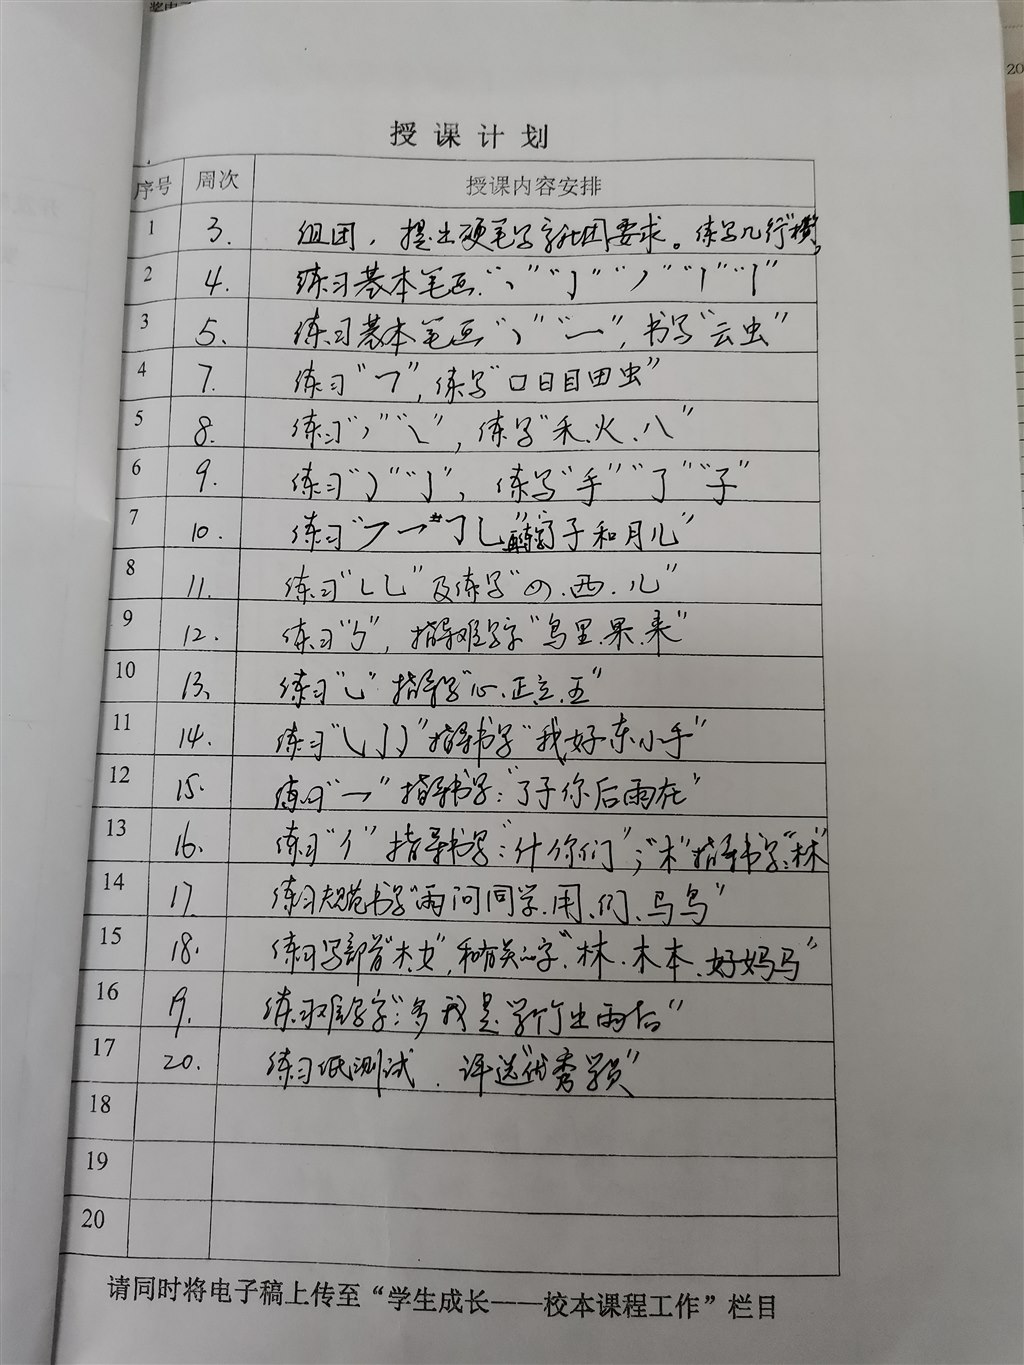 授课计划
序号 周次 授课内容安排
1 3. 组团，提出硬笔写字社团要求。练写几行“横”
2 4. 练习基本笔画“丶”“亅”“丿”“丨”“丨”
3 5. 练习基本笔画“㇀”“一”，书写“云虫”
4 7. 练习“㇕”，练写“口日目田虫”
5 8. 练习“丿”“㇏”，练写“禾.火.八”
6 9. 练习“㇁”“亅”，练写“手”“了”“子”
7 10. 练习“㇇乛𠃌乚 了子和月儿”
8 11. 练习“㇄乚”及练写“四.西.儿”
9 12. 练习“㇉”，指导难写字“鸟里.果.来”
10 13. 练习“㇃”指导写“心.正立.五”
11 14. 练习“㇂亅㇁”指导书写“我好东小手”
12 15. 练习“乛”指导书写：“了子你后雨在”
13 16. 练习“亻”指导书写：“什你们”；“木”指导书写：“林”
14 17. 练习规范书写“雨问同学.用、们、马鸟”
15 18. 练习写部首“木、女”，和有关的字“林.木本.好妈马”
16 19. 练习难写字：“多我是.学竹出雨后”
17 20. 练习纸测试．评选“优秀学员”
18
19
20
请同时将电子稿上传至“学生成长——校本课程工作”栏目
20